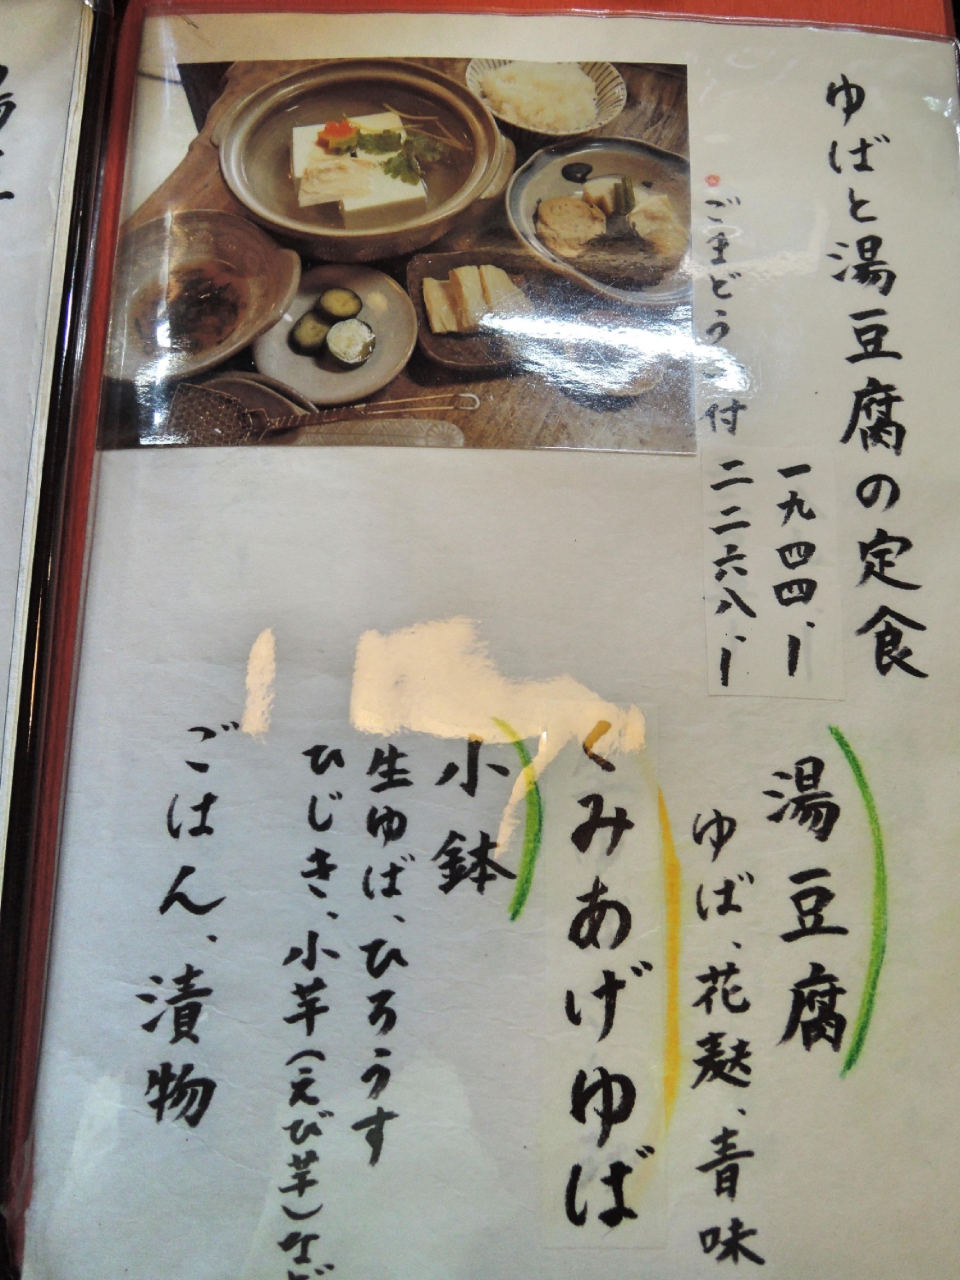 ゆばと湯豆腐の定食
一九四四、ー
ごまどうふ付 二二六八、ー
湯豆腐
ゆば、花麩、青味
くみあげゆば
小鉢
生ゆば、ひろうす
ひじき、小芋(えび芋)など
ごはん、漬物